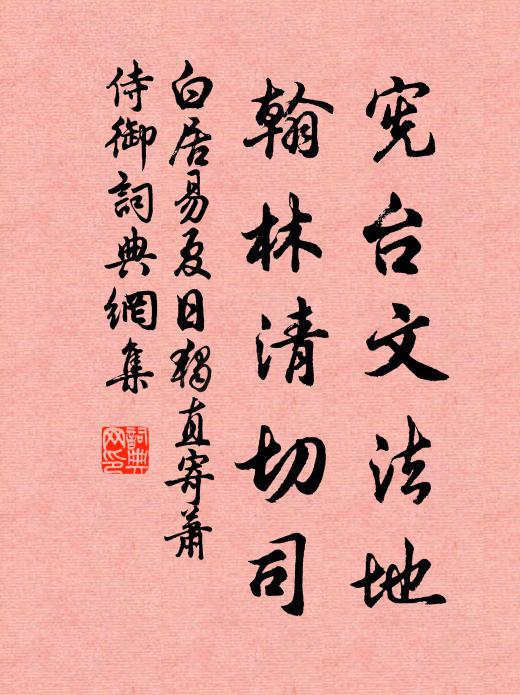 宪台文法地
翰林清切司
白居易夏日独直寄萧
侍御词典網集
詞典网印